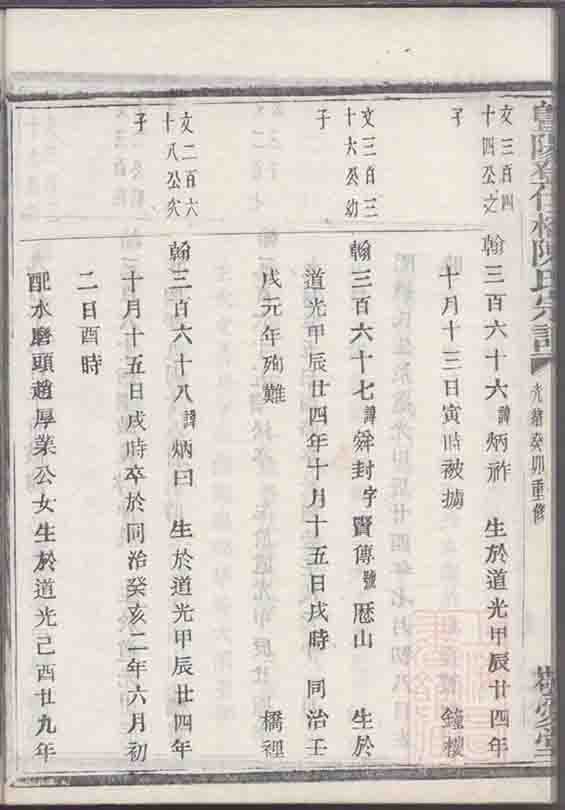 暨陽
陳氏宗譜
光緒癸卯重修
文三百四
十四公之
子
翰三百六十六諱炳祚 生於道光甲辰廿四年
十月十三日寅時被擄 鐘樓
文三百三
十六公幼
子
翰三百六十七諱舜封字賢傳號歷山 生於
道光甲辰廿四年十月十五日戌時 同治壬
戌元年殉難 橋裡
文二百六
十八公次
子
翰三百六十八諱炳曰 生於道光甲辰廿四年
十月十五日戌時卒於同治癸亥二年六月初
二日酉時
配水磨頭趙厚業公女生於道光己酉廿九年